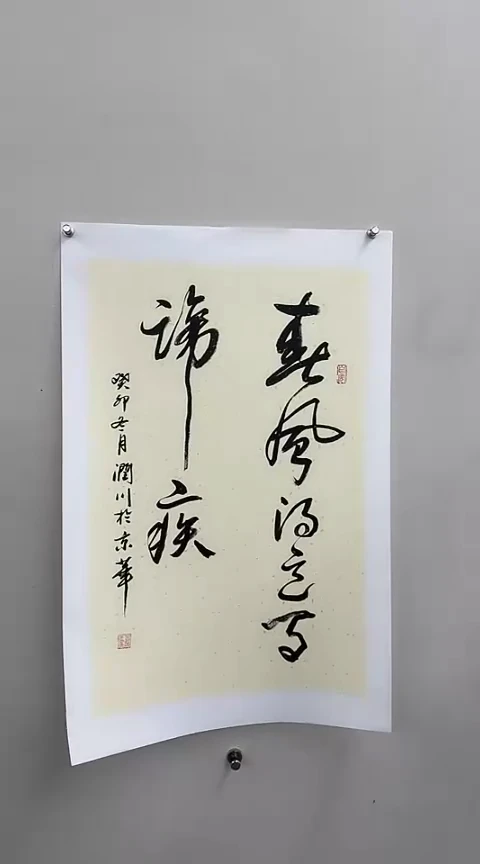 春風得意馬
蹄疾
癸卯冬月潤川於京華